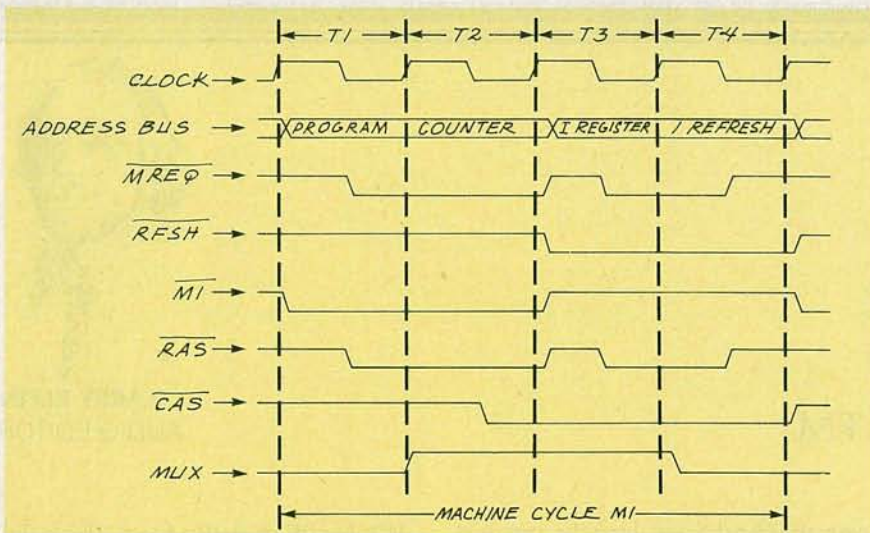 T1 T2 T3 T4
CLOCK
ADDRESS BUS PROGRAM COUNTER I REGISTER / REFRESH
MREQ
RFSH
M1
RAS
CAS
MUX
MACHINE CYCLE M1